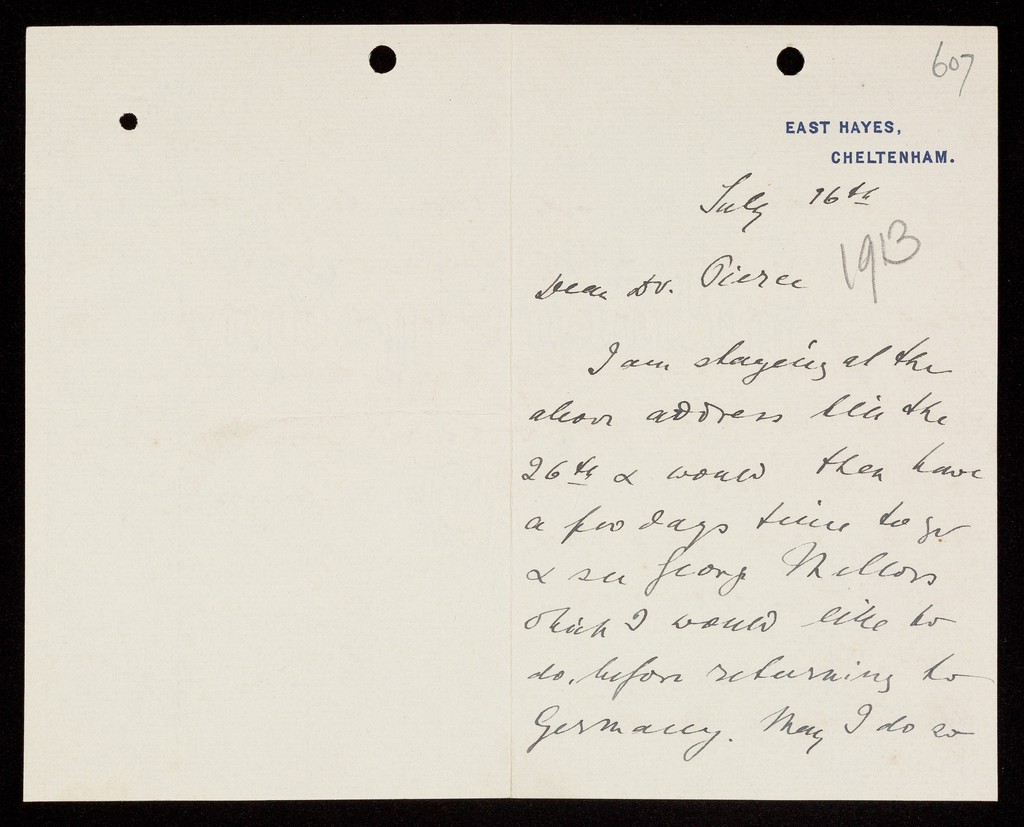 607
EAST HAYES,
CHELTENHAM.
July 16th
1913
Dear Dr. Pierce
I am staying at the
above address till the
26th & would then have
a few days time to go
& see George Mellors
which I would like to
do, before returning to
Germany. May I do so